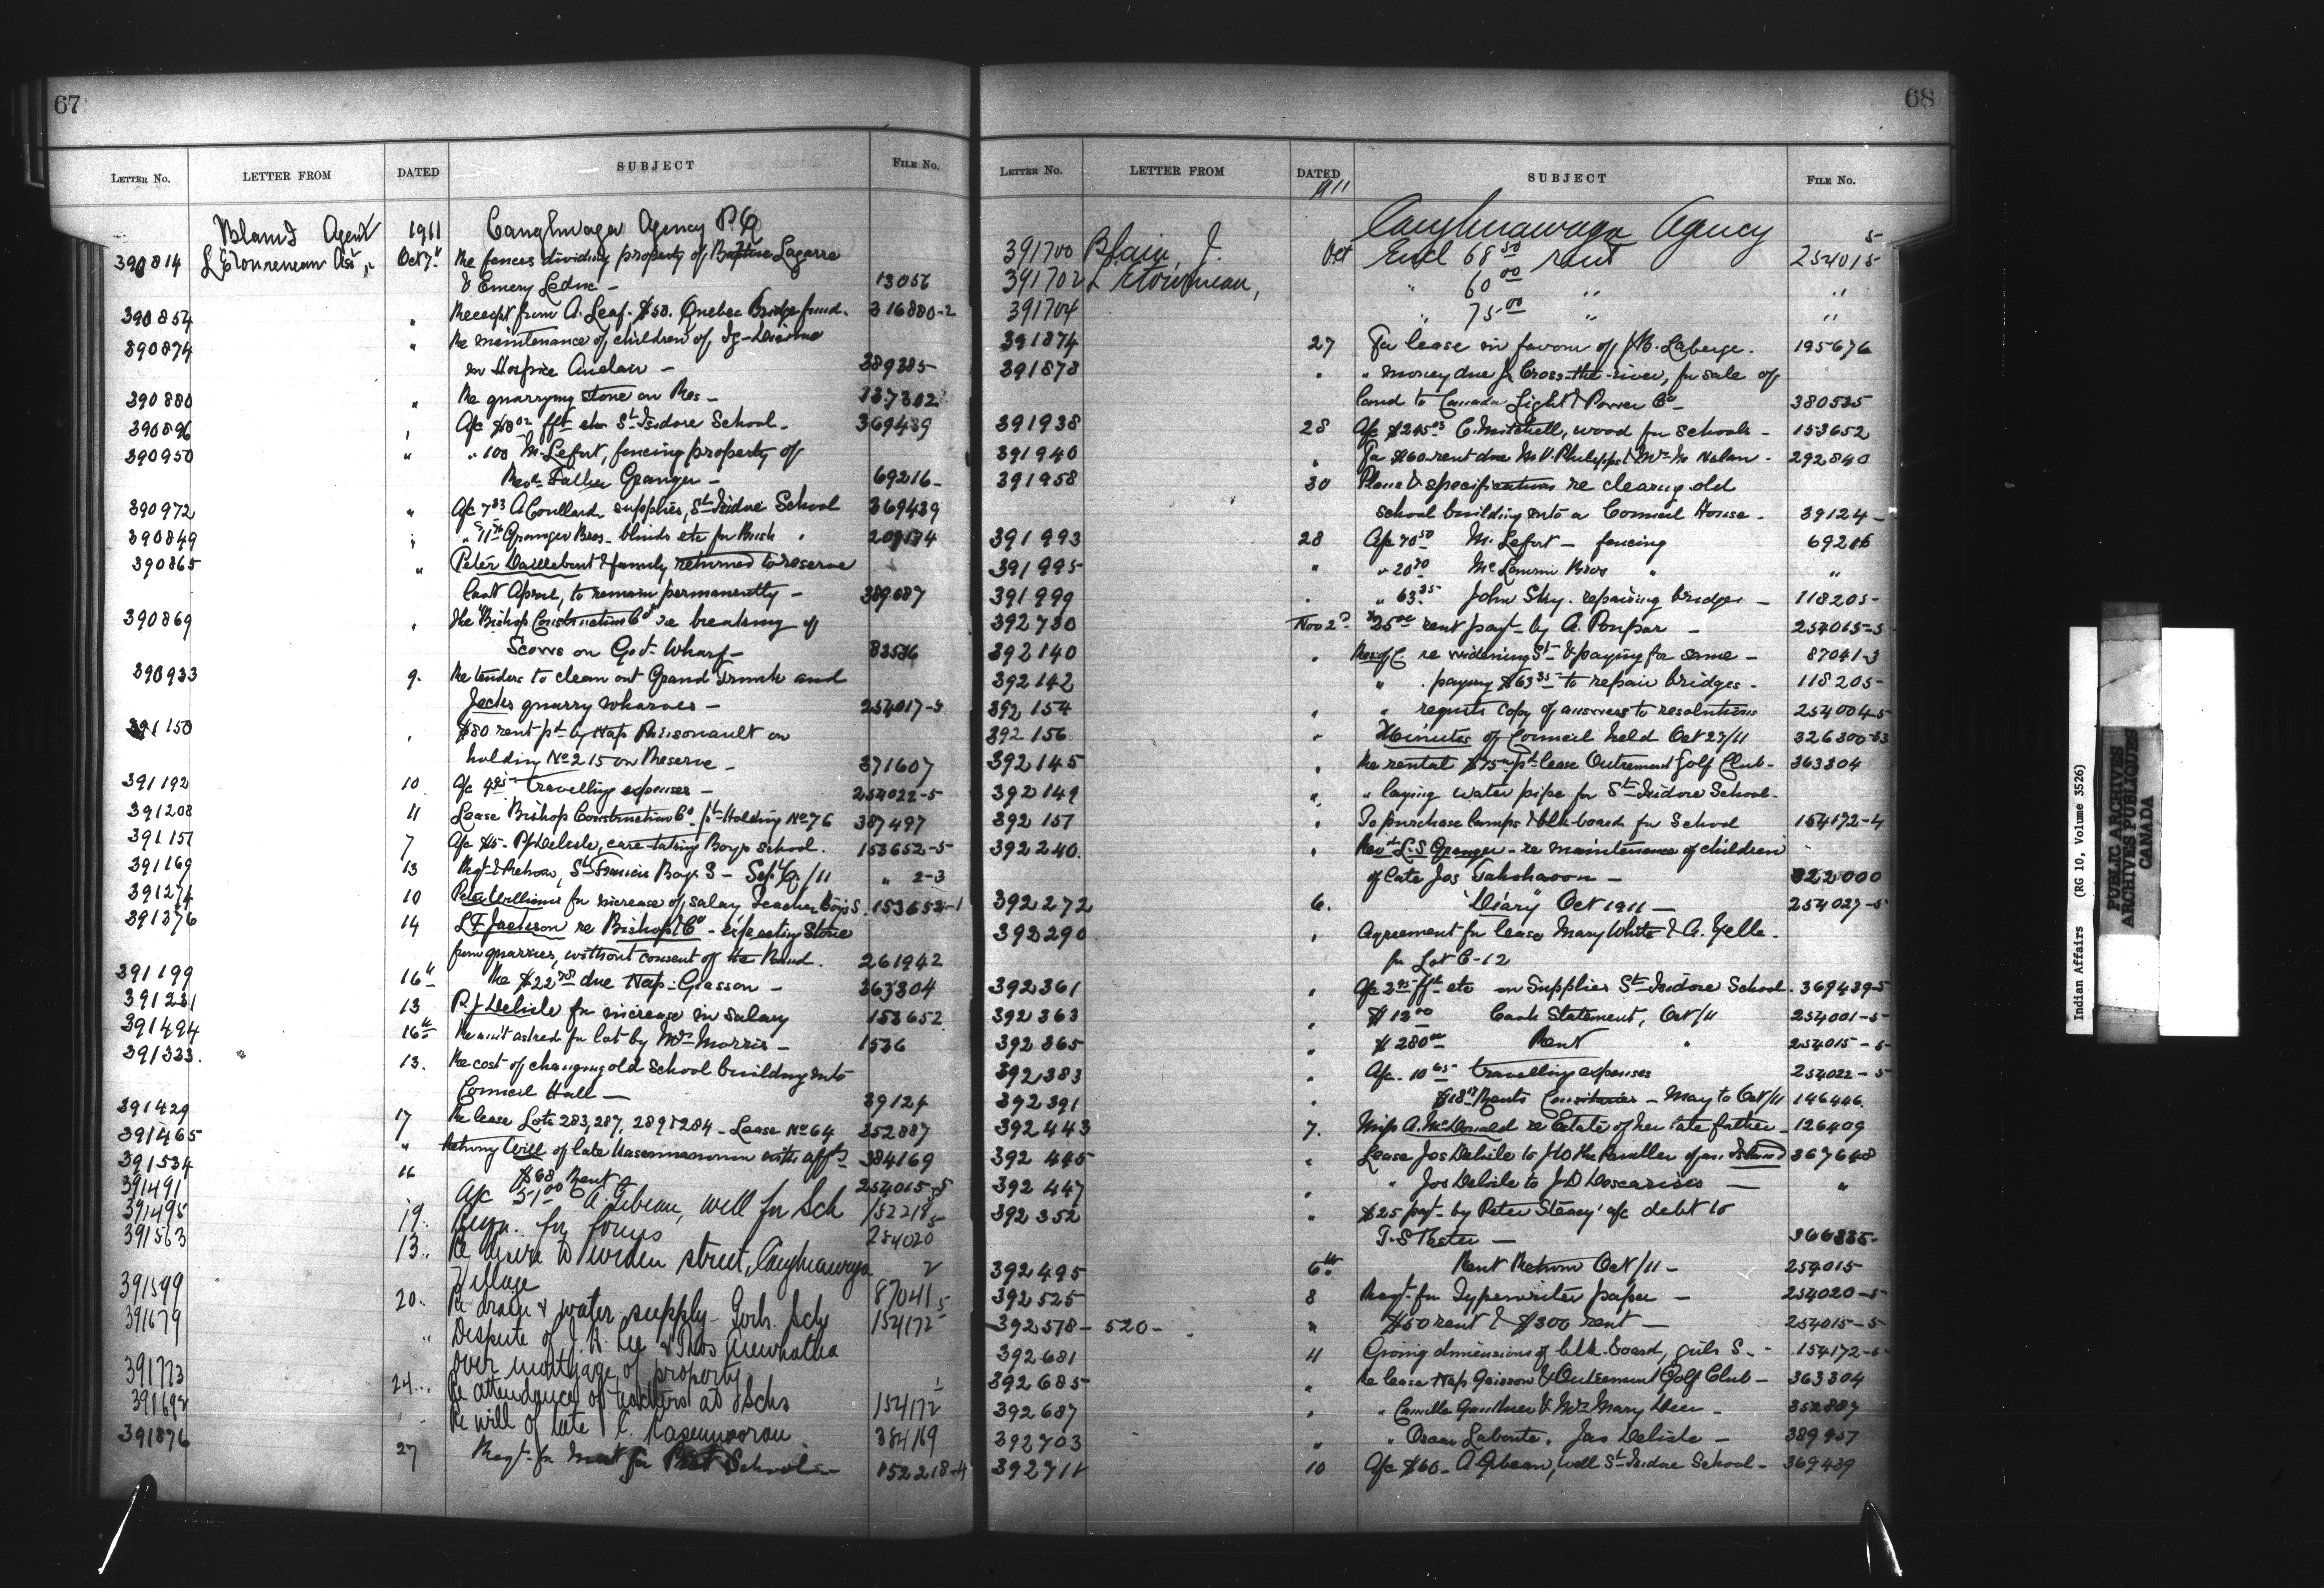 67
LETTER No. LETTER FROM DATED SUBJECT FILE No.
Agent 1911 Caughnawaga Agency P.Q
390814 Oct 7" Re fences dividing property of Baptiste Lagarre
& Emery Leduc - 13056
390854 " Receipt from A. Leaf. $50. Quebec Bridge fund. 316880-2
390874 " Re maintenance of children of
in Hospice Auclair - 389385-
390880 " Re quarrying stone on Res-
390896 " A/c St Isidore School- 369439
390950 " " 100 M. Lefort, fencing property of
Revd. Father Granger - 69216-
390972 " A/c 7 83 A Coullard supplies, St Isidore School 369439
390849 " Granger Bros- blinds etc for Bush "
390865 " Peter Daillebout & family returned to reserve
last April, to remain permanently - 389687
390869 " The Bishop Construction Co re breaking of
Scows on Govt. Wharf-
390933 9. Re tenders to clean out Grand Trunk and
Jacks quarry wharves - 254017-5
391150 " $80 rent pd by Nap
holding No 215 on Reserve - 371607
391192 10 A/c travelling expenses - 254022-5
391208 11 Lease Bishop Construction Co. pt Holding No 76 387497
391157 7 A/c $5- P.J. Delisle, care-taking Boys School. 153652-5
391169 13 Reqt & Return, St Francis Boys S - Sept Q/11 " 2-3
391274 10 Peter Williams for increase of salary Teacher Boys S. 153652-1
391376 14 L.F. Jackson re Bishop Co - Stone
from quarries, without consent of the Band. 261942
391199 16" Re $22 due Nap- Giasson - 363304
391231 13 P.J. Delisle for increase in salary 153652
391494 16th Re amt asked for lot by Mrs Morris - 1536
391333. 13. Re cost of changing old School building into
Council Hall - 39124
391429 17 Re lease Lots 283, 287, 289 & 284 - Lease No 64 352887
391465 " Returning Will of late with affts 384169
391534 16 $68 Rent 254015-5
391491 A/c 51.00 A. Gibeau, well for Sch 152218
391495 19.. Reqn. for forms 254020
391563 13.. Re desire to widen street, Caughnawaga
Village 87041
391599 20.. Re drain & water supply- Sch 154172
391679 " Dispute of
over mortgage of property
391773 24... Re attendance of teachers at Schs 154172
391692 Re will of late 384169
391876 27 Reqt- for Schools - 152218-4
68
LETTER No. LETTER FROM DATED SUBJECT FILE No.
1911 Caughnawaga Agency
391700 Blain, J. Oct Encl 68 50 rent 254015
391702 " 60 00 " "
391704 " 75 00 " "
391874 27 For lease in favour of J.B. Laberge. 195676
391878 " " money due J. Cross-the-river, for sale of
land to Canada Light & Power Co- 380535
391938 28 A/c C. Mitchell, wood for schools - 153652
391940 " For $60 rent due 292840
391958 30 Plans & specifications re clearing old
school building into a Council House. 39124-
391993 28 A/c 70 50 M. Lefort - fencing 69216
391995 " " 20 Bros " "
391999 " " 63 35 John Sky. repairing bridges - 118205-
392730 Nov 2d rent payt- by A. Poupar - 254015-5
392140 " Res: of C. re widening St- & paying for same - 87041-3
392142 " " . paying $63 35 to repair bridges - 118205-
392154 " " requests copy of answers to resolutions 254004-5
392156 " Minutes of Council held Oct 27/11 326300-33
392145 " Re rental $75 pt-lease Outremont Golf Club- 363304
392149 " " laying water pipe for St Isidore School-
392157 " To purchase lamps & blk-board for School 154172-4
392240 " Revd L.S Granger- re maintenance of children
of late Jos Takohavon - 322000
392272 6. "Diary" Oct 1911 - 254027-5
392290 " Agreement for lease Mary White & A. Yelle.
for Lot C-12
392361 " A/c fft- etc on Supplies St Isidore School. 369439-5
392363 " $12 00 Cash Statement, Oct/11 254001-5-
392365 " $280 00 Rent " 254015-5
392383 " A/c- 10 65 travelling expenses 254022-5
392391 " Rents - May to Oct/11 146446.
392443 7. Miss A. McDonald re Estate of her late father- 126409
392445 " Lease Jos Delisle to Island 367648
392447 " " Jos Delisle to J.D Descarises - "
392352 " $25 payt- by Peter Steacy a/c debt to
T.S - 366335-
392495 6th Rent Return Oct/11 - 254015-
392525 8 Reqt-for Typewriter paper - 254020-5
392578-520- " $50 rent & $300 rent - 254015-5
392681 11 Giving dimensions of blk-board, girls S- 154172-
392685- " Re lease Nap Giasson & Outremont Golf Club - 363304
392687 " " Camille Gauthier & Mrs Mary Deer - 352887
392703 " " Oscar Laberte. Jas Delisle - 389957
392711 10 A/c $60- A Gibeau, well St Isidore School- 369439
Indian Affairs (RG 10, Volume 3526)
PUBLIC ARCHIVES
ARCHIVES PUBLIQUES
CANADA